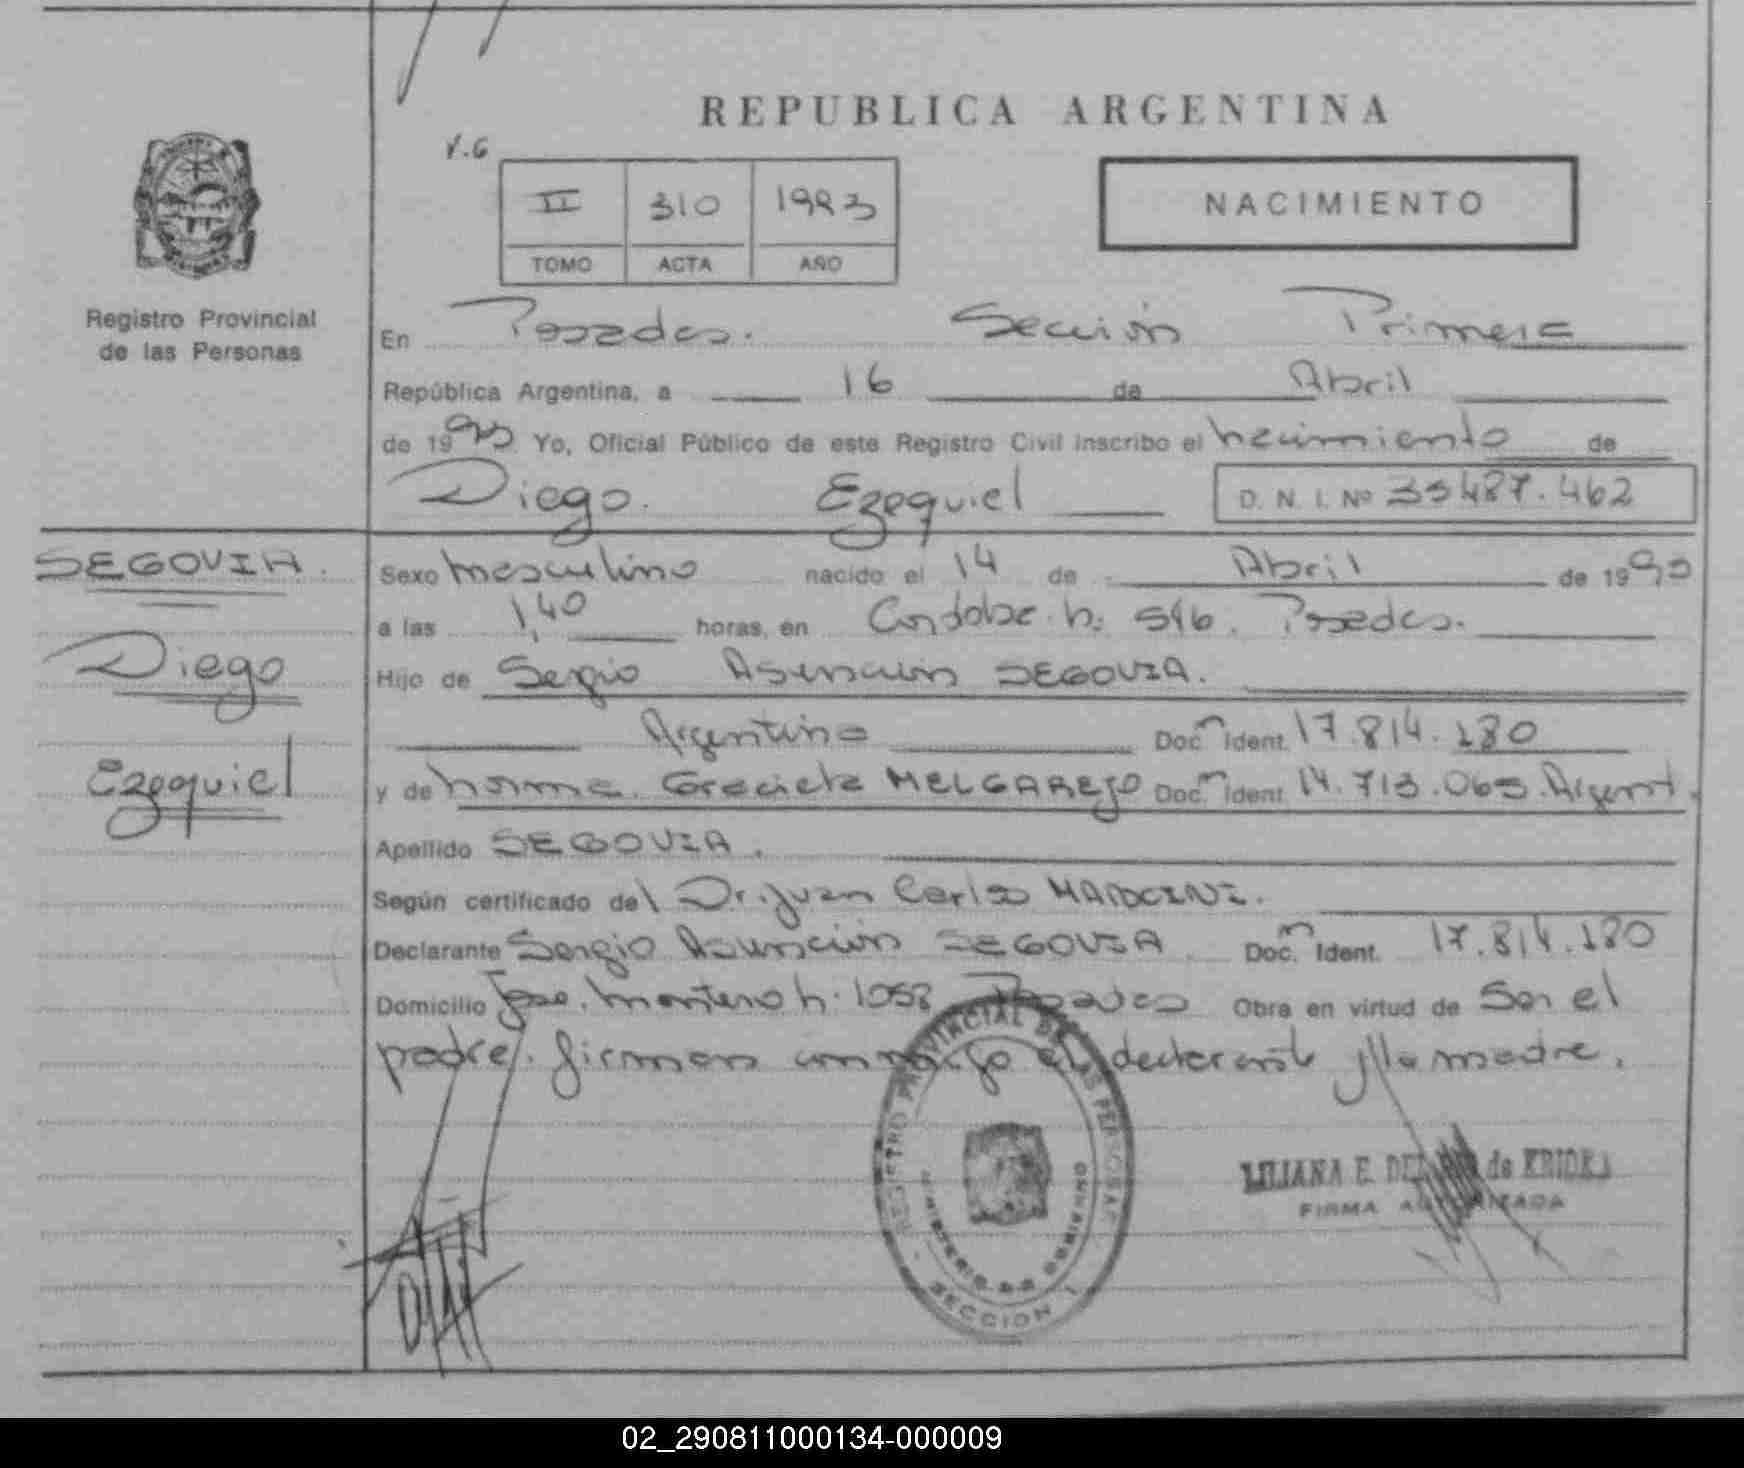 REPUBLICA ARGENTINA
V.G
II 310 1993
TOMO ACTA AÑO
NACIMIENTO
Registro Provincial
de las Personas
En Posadas. Sección Primera
República Argentina, a 16 de Abril
de 1993 Yo, Oficial Público de este Registro Civil inscribo el nacimiento de
Diego Ezequiel D. N. I. Nº 487.462
SEGOVIA.
Diego
Ezequiel
Sexo masculino nacido el 14 de Abril de 19
a las 1,40 horas, en Cordoba n: 546. Posadas.
Hijo de Sergio Asunción SEGOVIA.
Argentino Doc. Ident. 17.814.180
y de Norma Graciela MELGAREJO Doc. Ident. 14.713.065. Argent.
Apellido SEGOVIA.
Según certificado del Dr. Juan Carlos
Declarante Sergio Asunción SEGOVIA Doc. Ident. 17.814.180
Domicilio Jose. Montero n: 1058 Posadas Obra en virtud de Ser el
padre. firman conmigo el declarante y la madre.
REGISTRO PROVINCIAL DE LAS PERSONAS
MINISTERIO DE GOBIERNO
SECCION 1
LILIANA E. DEL de
FIRMA AUTORIZADA
02_290811000134-000009